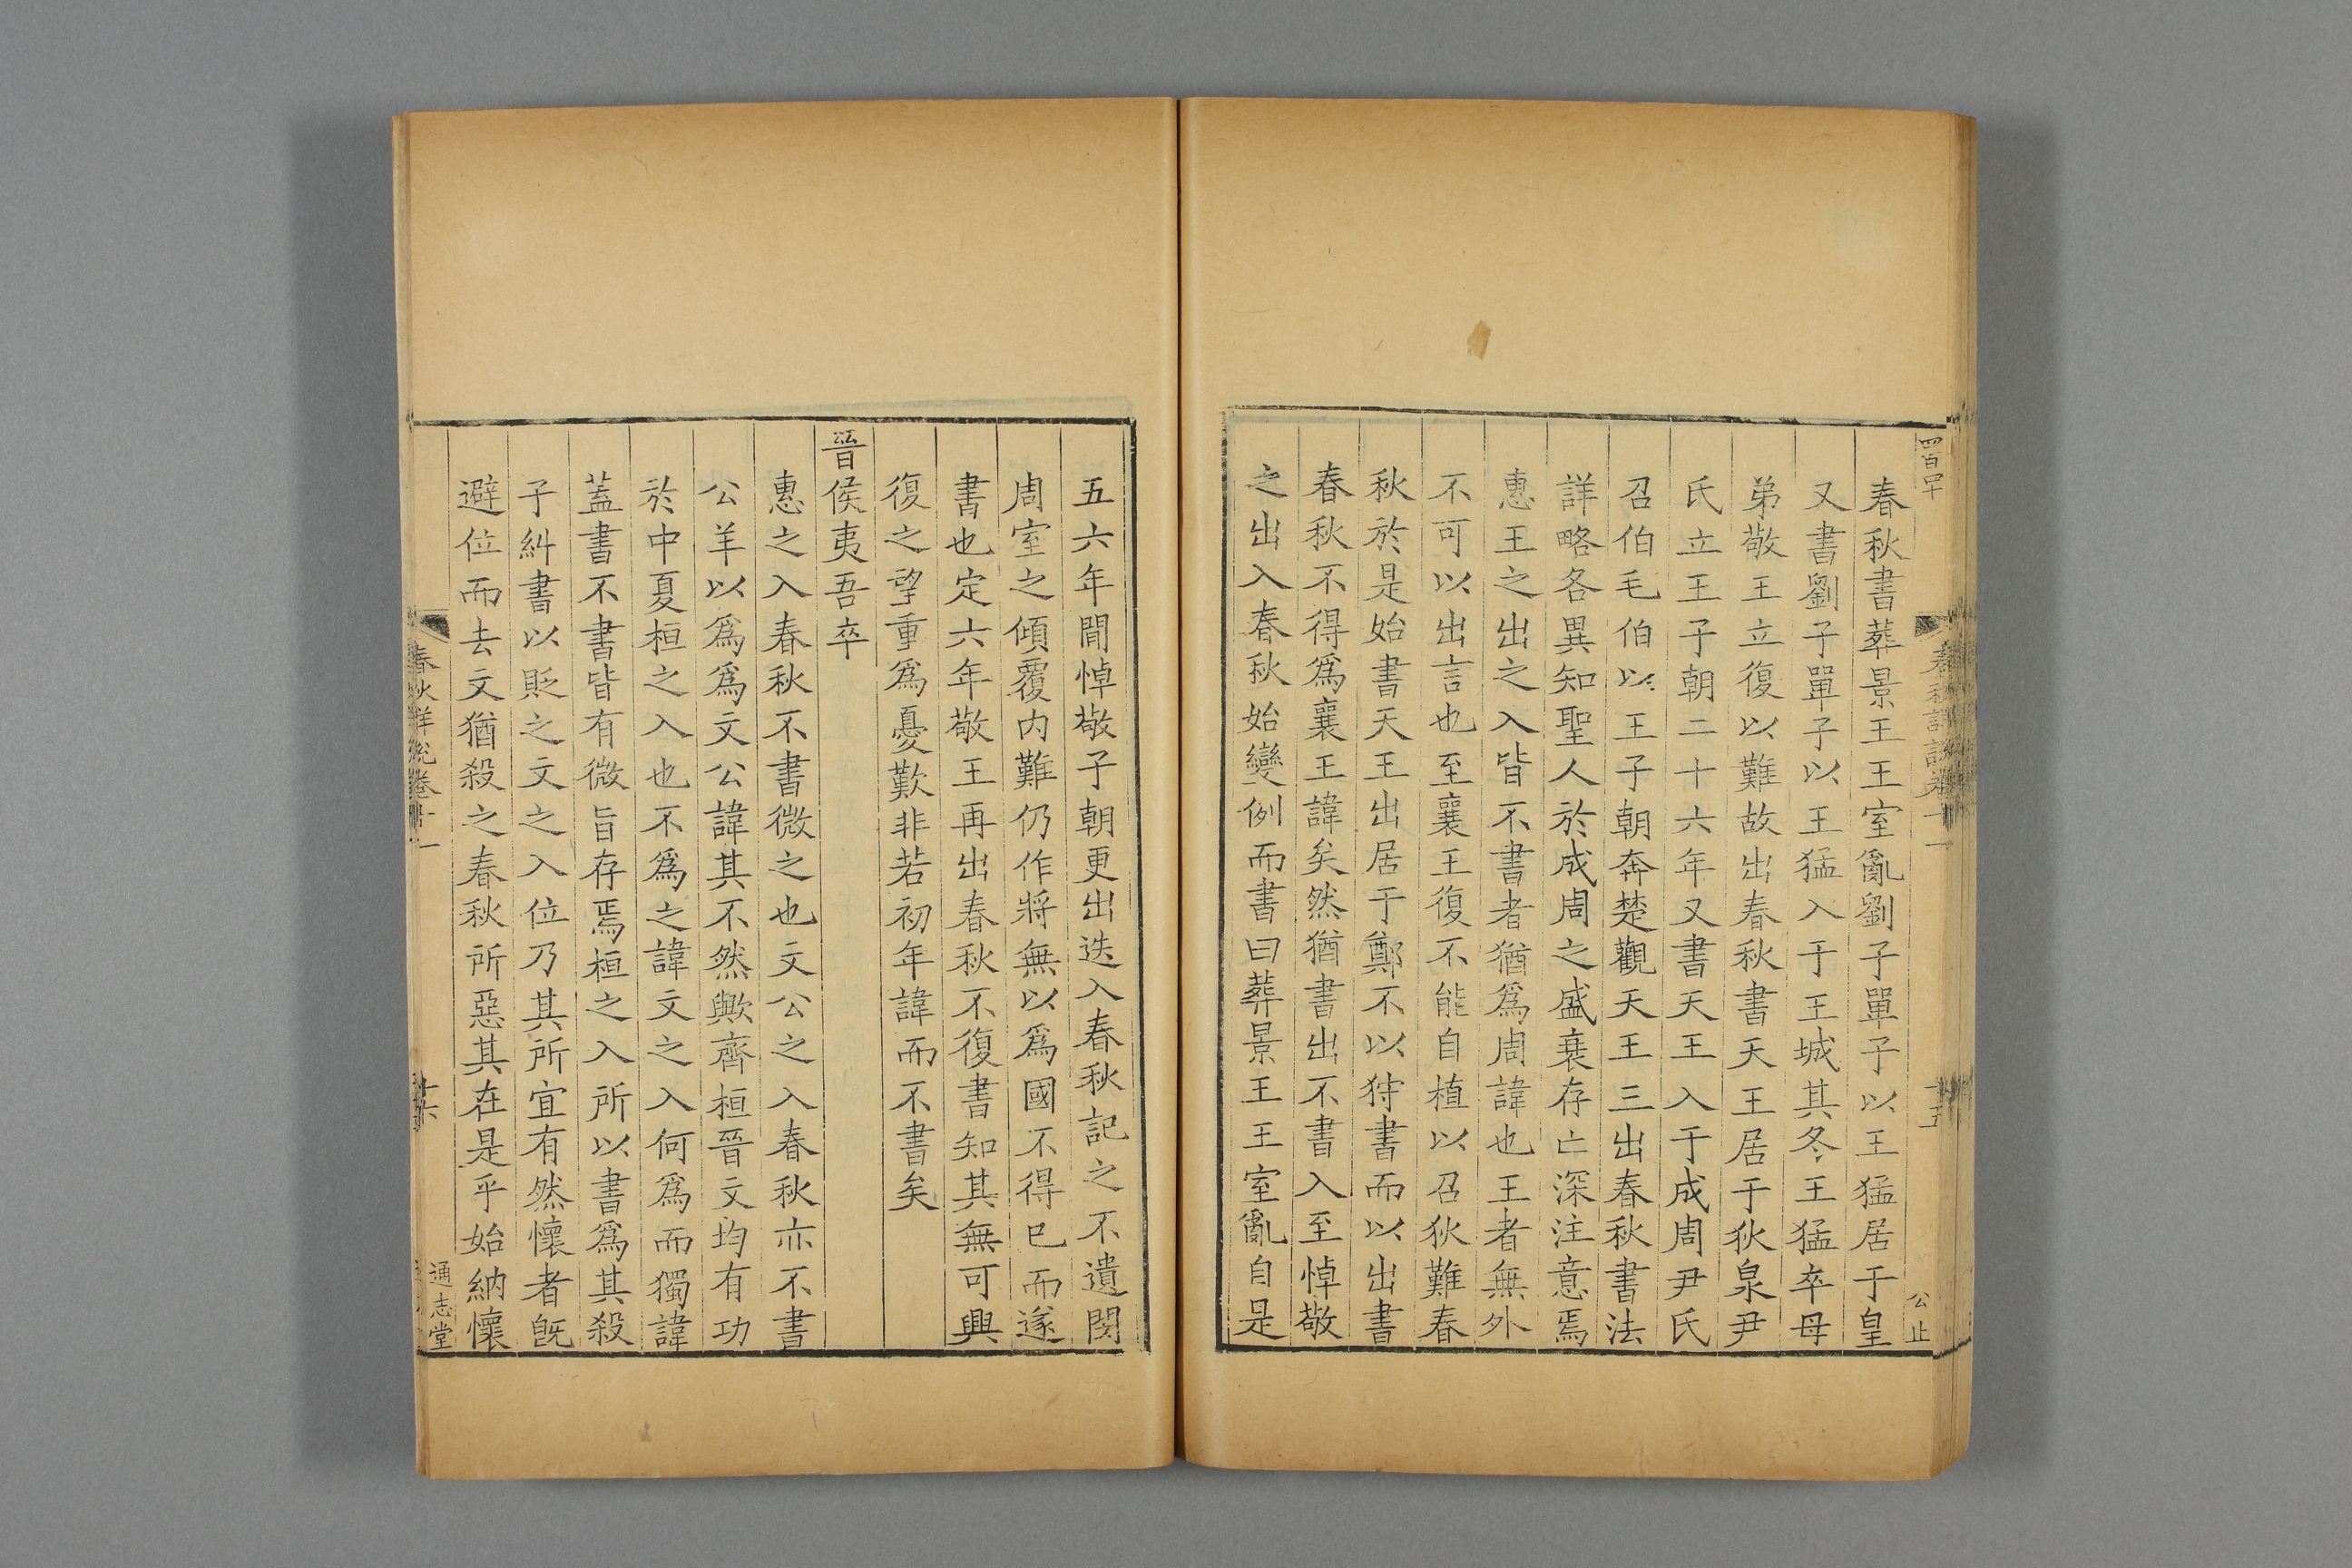 春秋書葬景王王室亂劉子單子以王猛居于皇
又書劉子單子以王猛入于王城其冬王猛卒母
弟敬王立復以難故出春秋書天王居于狄泉尹
氏立王子朝二十六年又書天王入于成周尹氏
召伯毛伯以王子朝奔楚觀天王三出春秋書法
詳略各異知聖人於成周之盛衰存亡深注意焉
惠王之出之入皆不書者猶為周諱也王者無外
不可以出言也至襄王復不能自植以召狄難春
秋於是始書天王出居于鄭不以狩書而以出書
春秋不得為襄王諱矣然猶書出不書入至悼敬
之出入春秋始變例而書曰葬景王王室亂自是
五六年間悼敬子朝更出迭入春秋記之不遺閔
周室之傾覆内難仍作將無以為國不得已而遂
書也定六年敬王再出春秋不復書知其無可興
復之望重為憂歎非若初年諱而不書矣
晉侯夷吾卒
惠之入春秋不書微之也文公之入春秋亦不書
公羊以為為文公諱其不然歟齊桓晉文均有功
於中夏桓之入也不為之諱文之入何為而獨諱
蓋書不書皆有微旨存焉桓之入所以書為其殺
子糾書以貶之文之入位乃其所宜有然懷者旣
避位而去文猶殺之春秋所惡其在是乎始納懷
春秋詳說卷十一
十六
通志堂
十五
公止